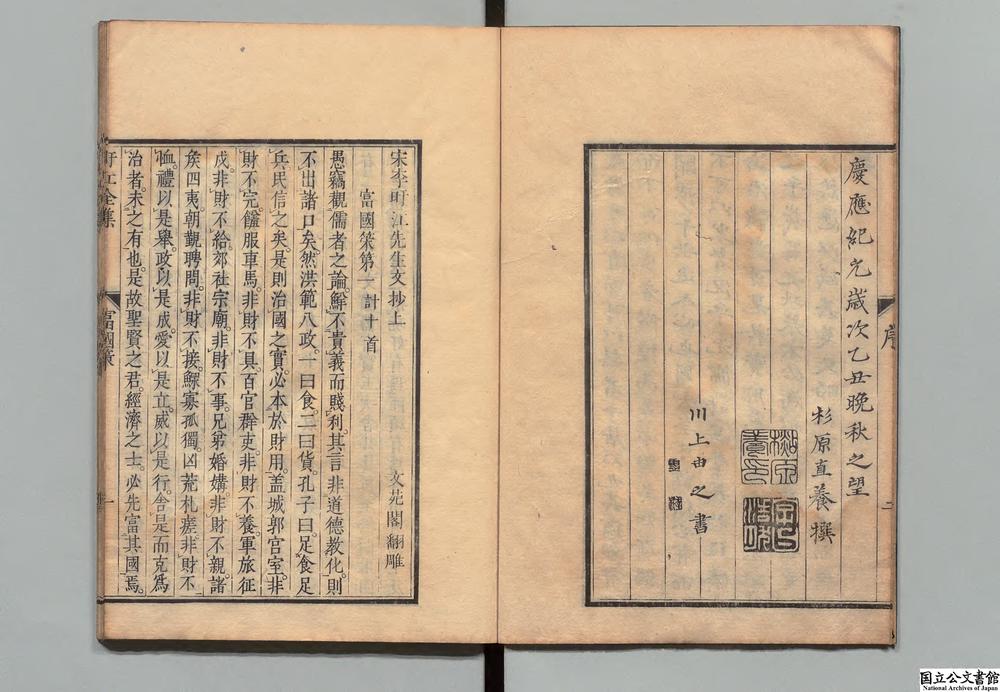 慶應紀元歲次乙丑晩秋之望
杉原直養撰
川上由之書
序
二
宋李盱江先生文抄上
文苑閣翻雕
富國策第一 計十首
愚竊觀儒者之論。鮮不貴義而賤利。其言非道德教化。則
不出諸口矣。然洪範八政。一曰食。二曰貨。孔子曰。足食足
兵。民信之矣。是則治國之實。必本於財用。蓋城郭宮室。非
財不完。饈服車馬。非財不具。百官群吏。非財不養。軍旅征
戍。非財不給。郊社宗廟。非財不事。兄弟婚媾。非財不親。諸
矦四夷朝覲聘問。非財不接。鰥寡孤獨。凶荒札瘥。非財不
恤。禮以是舉。政以是成。愛以是立。威以是行。舍是而克爲
治者。未之有也。是故聖賢之君。經濟之士。必先富其國焉。
盱江全集
富國策
一
国立公文書館
National Archives of Japan